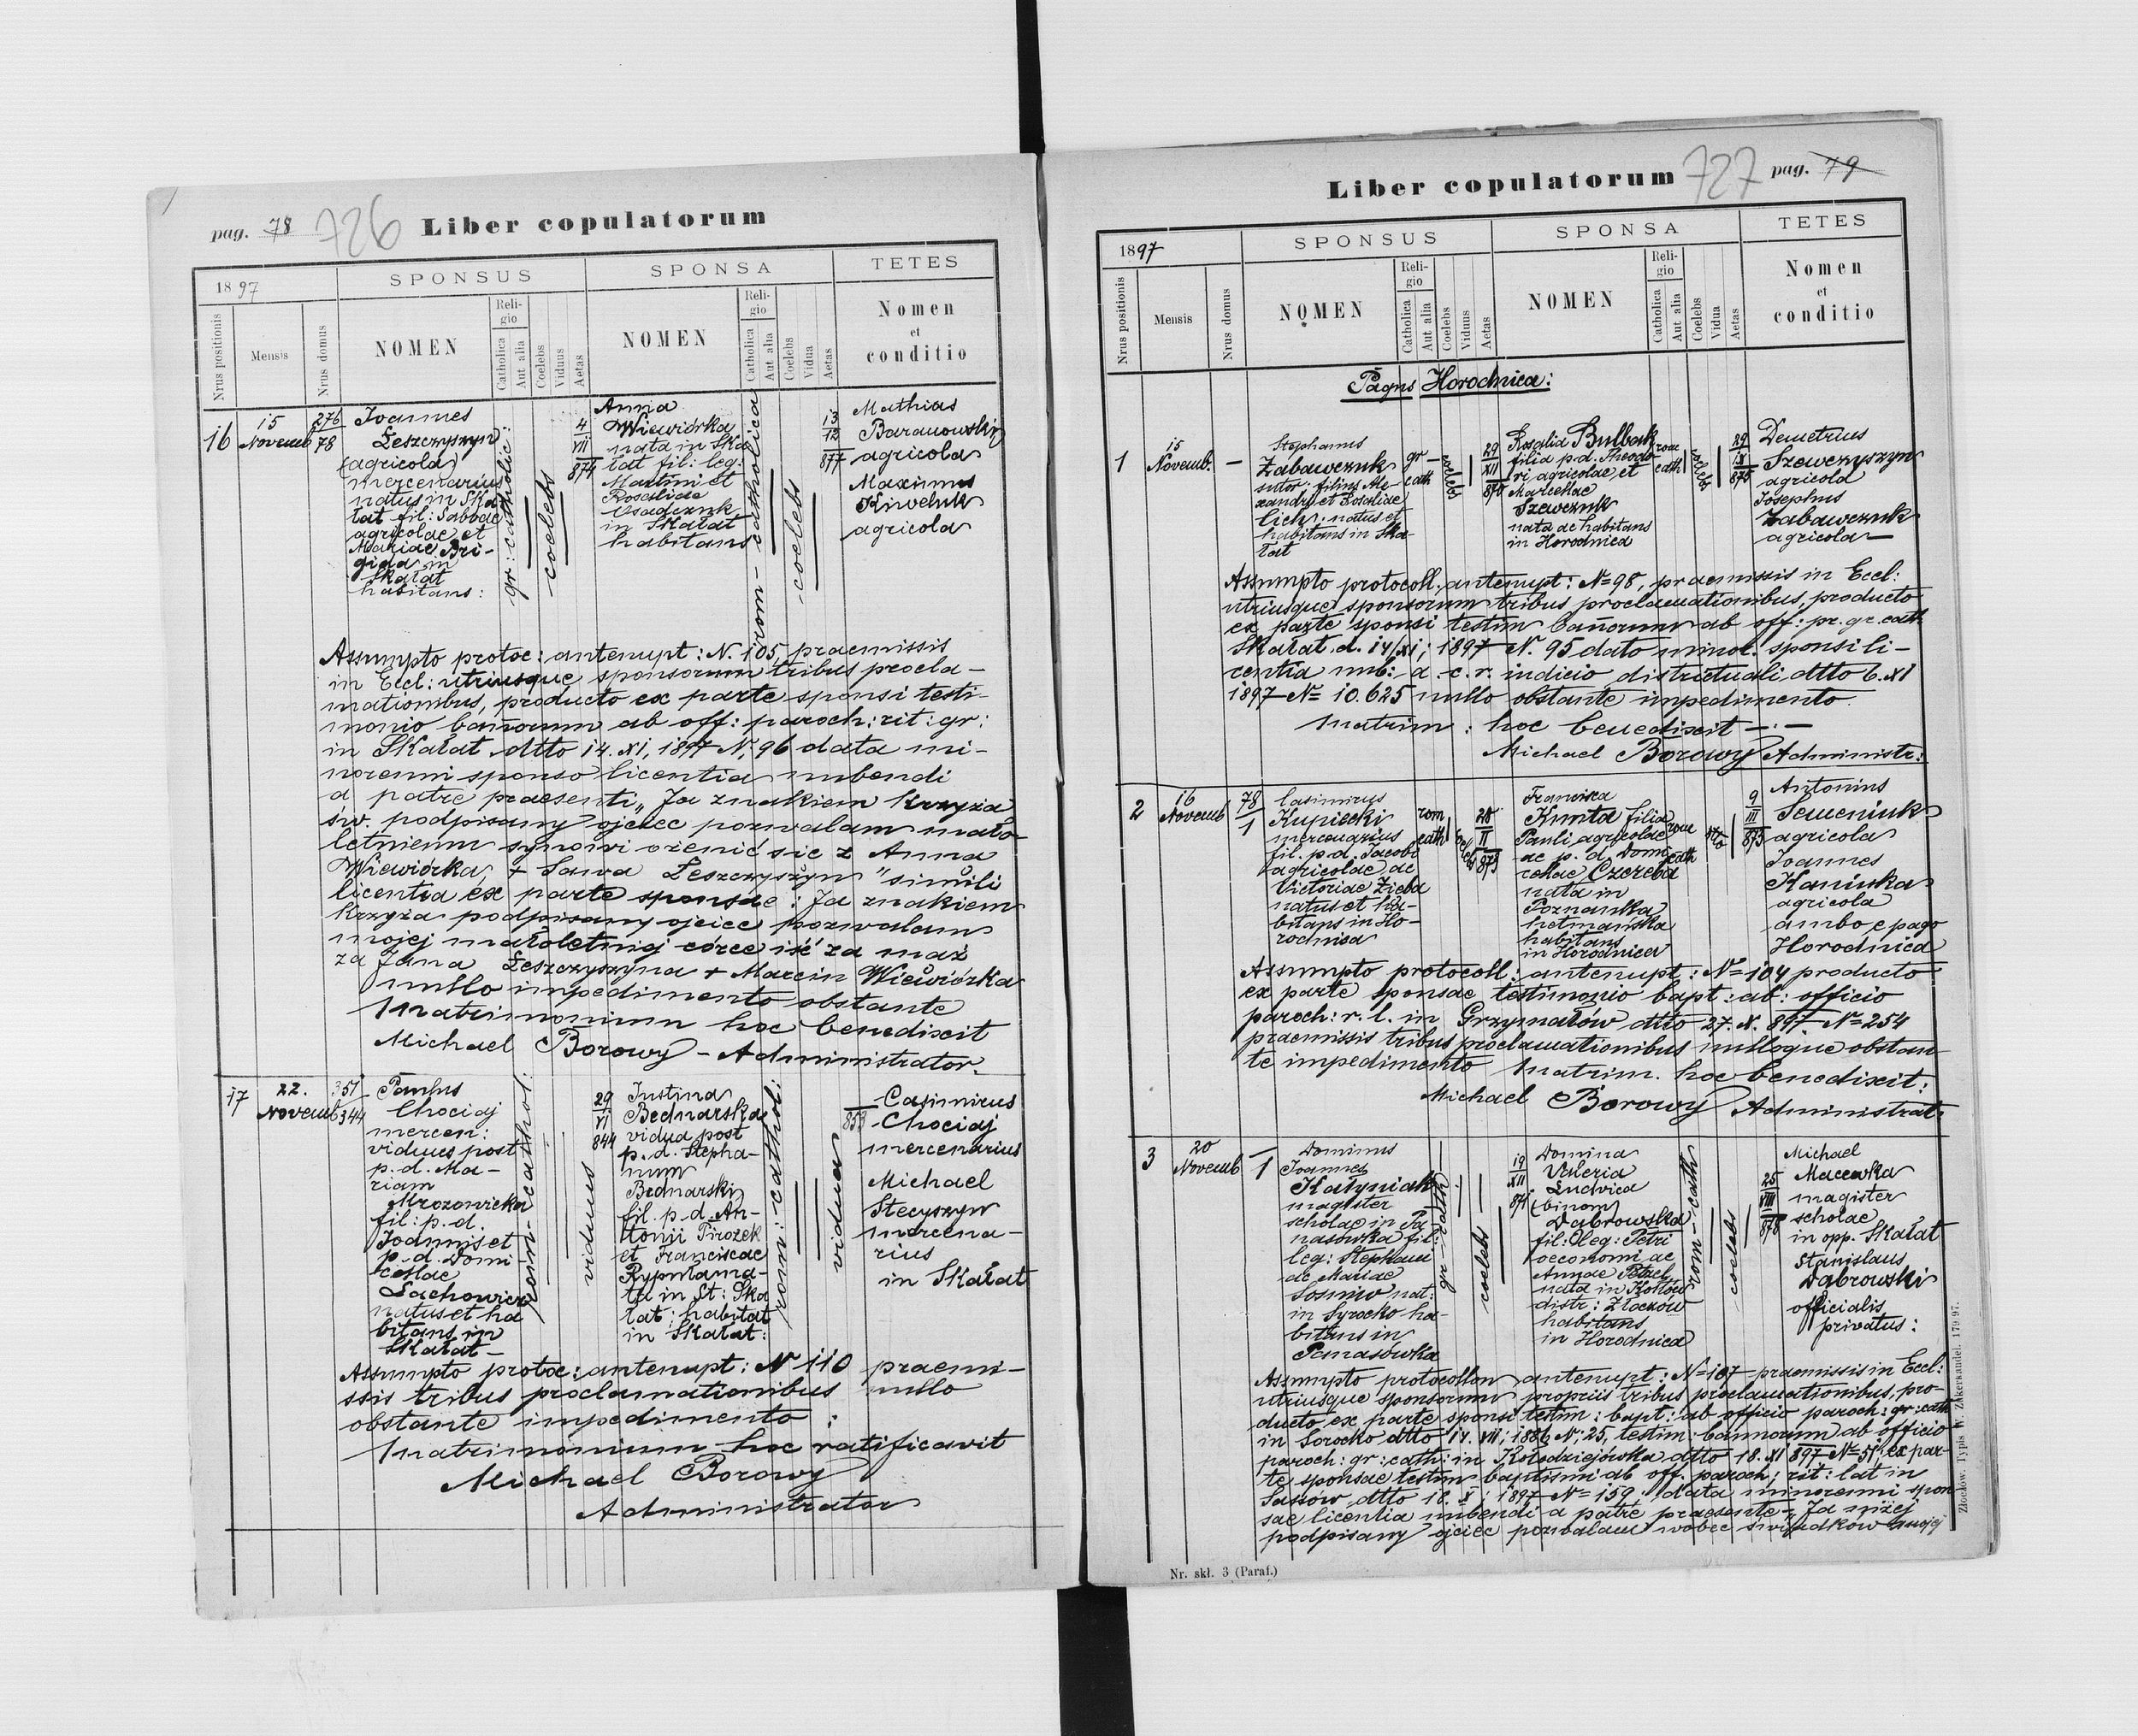 pag. 78 726 Liber copulatorum
1897
SPONSUS
SPONSA
TETES
Nrus positionis
Mensis
Nrus domus
NOMEN
Religio
Catholica
Aut. alia
Coelebs
Viduus
Aetas
NOMEN
Religio
Catholica
Aut. alia
Coelebs
Vidua
Aetas
Nomen
et
conditio
16
15
Novemb
276
78
Joannes
Leszczyszyn
(agricola)
mercenarius
natus in Ska
łat fil: Sabbae
agricolae et
Mariae Bri-
gida in
Skałat
habitans:
gr: catholic:
coelebs
4
VII
874
Anna
Wiewiórka
nata in Ska
łat fil: leg:
Martini et
Rosaliae
Osadczuk
in Skałat
habitans
rom-catholica
coelebs
13
12
877
Mathias
Baranowski
agricola
Maximus
Kiweluk
agricola
Assumpto protoc: antenupt: N. 105, praemissis
in Eccl: utriusque sponsorum tribus procla-
mationibus, producto ex parte sponsi testi-
monio bannorum ab off: paroch: rit: gr:
in Skałat dtto 14. XI, 1897 N. 96 data mi-
norenni sponso licentia nubendi
a patre praesenti „Ja znakiem krzyża
św. podpisany ojciec pozwalam mało-
letniemu synowi ożenić się z Anną
Wiewiórką + Sawa Leszczyszyn" simili
licentia ex parte sponsae: Ja znakiem
krzyża podpisany ojciec pozwalam
mojej małoletniej córce iść za mąż
za Jana Leszczyszyna + Marcin Wiewiórka
nullo impedimento obstante
Matrimonium hoc benedixit
Michael Borowy - Administrator.
17
22.
Novemb
351
344
Paulus
Chociaj
mercen:
viduus post
p. d. Ma-
riam
Mrozowicka
fil: p. d.
Joannis et
p. d. Domi
cellae
Lachowicz
natus et ha
bitans in
Skałat-
rom-cathol:
viduus
29
VI
844
Justina
Bednarska
vidua post
p. d. Stepha-
num
Bednarski
fil. p. d. An-
tonii Pirozek
et Franciscae
in St: Ska
łat: habitat
in Skałat:
rom: cathol:
vidua
853
Casimirus
Chociaj
mercenarius
Michael
Stecyszyn
mercena-
rius
in Skałat
Assumpto protoc: antenupt: N 110 praemi-
ssis tribus proclamationibus nullo
obstante impedimento:
Matrimonium hoc ratificavit
Michael Borowy
Administrator
Liber copulatorum 727 pag. 79
1897
SPONSUS
SPONSA
TETES
Nrus positionis
Mensis
Nrus domus
NOMEN
Religio
Catholica
Aut alia
Coelebs
Viduus
Aetas
NOMEN
Religio
Catholica
Aut alia
Coelebs
Vidua
Aetas
Nomen
et
conditio
Pagus Horodnica:
1
15
Novemb.
-
Stephanus
Zabawczuk
sutor: filius Ale-
xandri et Rosaliae
Lich: natus et
habitans in Ska-
łat
gr-
cath
coelebs
29
XII
870
Rosalia Bulbak
filia p. d. Theodo-
ri agricolae et
Marcellae
Szewczuk
nata ac habitans
in Horodnica
rom
cath
coelebs
29
IX
875
Demetrius
Szewczyszyn
agricola
Josephus
Zabawczuk
agricola-
Assumpto protocoll. antenupt: N=98, praemissis in Eccl:
utriusque sponsorum tribus proclamationibus, producto
ex parte sponsi testim bannorum ab off: pr. gr. cath
Skałat. d. 14/XI; 1897 N. 95 dato minor. sponsi li-
centia nub: a c. r. iudicio districtuali dtto 6. XI
1897 N= 10.625 nullo obstante impedimento.
Matrim: hoc benedixit -.-
Michael Borowy Administr:
2
16
Novemb
78
1
Casimirus
Kupiecki
mercenarius
fil. p. d. Jacobi
agricolae ac
Victoriae Zięba
natus et ha-
bitans in Ho-
rodnica
rom
cath
28
II
873
Francisca
Kunta filia
Pauli agricolae
ac p. d. Domi
cellae Czereba
nata in
Poznanka
hetmańska
habitans
in Horodnica
rom
cath
9
III
875
Antonius
Semeniuk
agricola
Joannes
Kaniuka
agricola
ambo e pago
Horodnica
Assumpto protocoll: antenupt: N=104 producto
ex parte sponsae testimonio bapt: ab: officio
paroch: r. l. in Grzymałów dtto 27. X. 897 N=254
praemissis tribus proclamationibus nulloque obstan
te impedimento Matrim. hoc benedixit:
Michael Borowy Administrat:
3
20
Novemb
1
Dominus
Joannes
Kałyniak
magister
scholae in Pa
nasówka fil:
leg: Stephani
ac Mariae
Sosnów nat:
in Syrocko ha-
bitans in
Panasówka
gr-cath
coelebs
19
XII
871
Domina
Valeria
Ludvica
(binom)
Dąbrowska
fil: leg: Petri
oeconomi ac
Annae Petzel
nata in Kołtów
distr: Złoczów
habitans
in Horodnica
rom-cath
coelebs
25
VIII
878
Michael
Macewka
magister
scholae
in opp. Skałat
Stanislaus
Dąbrowski
officialis
privatus:
Assumpto protocollon antenupt: N=107 praemissis in Eccl:
utriusque sponsorum propriis tribus proclamationibus, pro-
ducto ex parte sponsi testim: bapt: ab officio paroch: gr: cath
in Sorocko dtto 14. VII; 1886 N; 25, testim: bannorum ab officio
paroch: gr: cath: in Kołodziejówka dtto 18. XI 897 N=51; ex par-
te sponsae testim baptismi ab off. paroch; rit: lat in
Sassów dtto 18. X; 1897 N=159. data minorenni spon-
sae licentia nubendi a patre praesente „Ja niżej
podpisany ojciec pozwalam wobec świadków mojej
Nr. skł. 3 (Paraf.)
Złoczów. Typis W. Zukerkandel. 179 97.